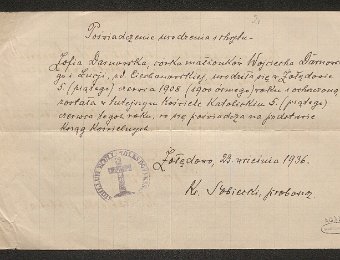 Poświadczenie urodzenia i chrztu.
Zofia Darnowska, córka małżonków Wojciecha Darnow-
go i Łucji, urodziła się w Żołędowie
5. (piątego) czerwca 1908 (1900 ósmego) roku i ochrzczoną
została w tutejszym Kościele Katolickim 5. (piątego)
czerwca tegoż roku, co się poświadcza na podstawie
ksiąg kościelnych
Żołędowo 23. września 1936.
Ks. Sobiecki, proboszcz